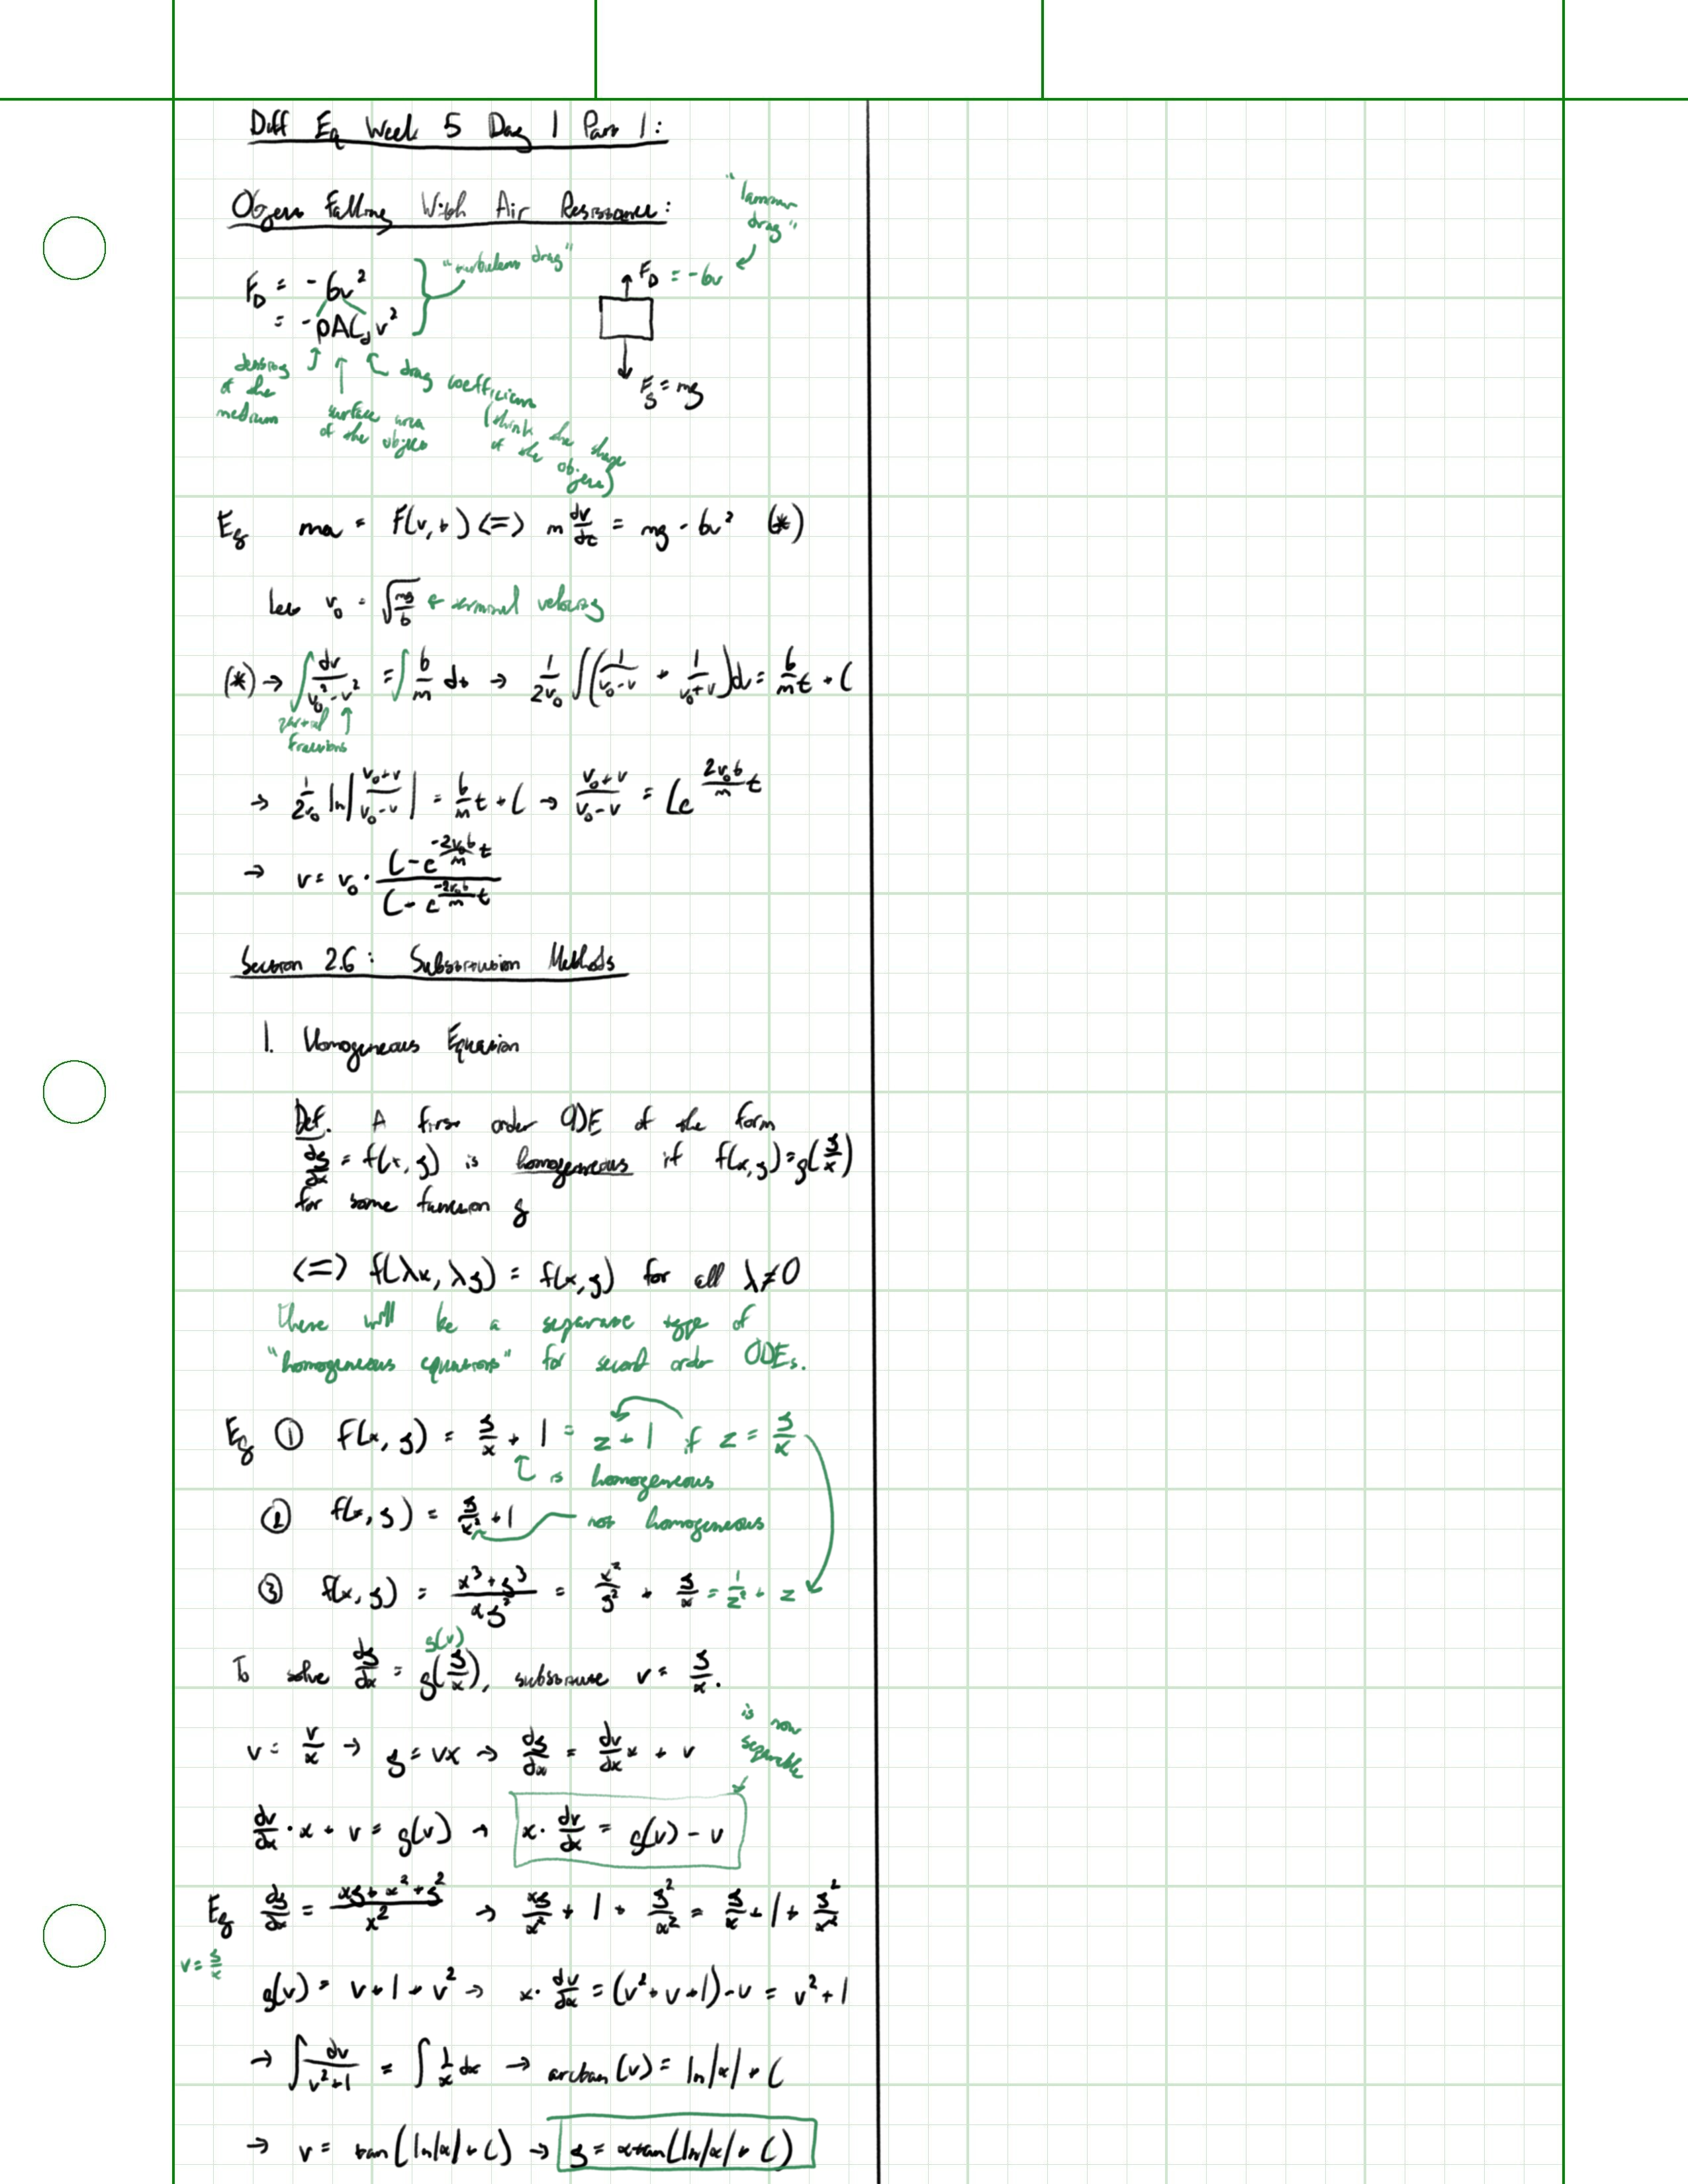 Diff Eq Week 5 Day 1 Part 1:
Object Falling With Air Resistance:
"laminar
drag"
F_D = -bv²
= -ρAC_d v²
"turbulent drag"
F_D = -bv
F_g = mg
density
of the
medium
surface area
of the object
drag coefficient
(think the shape
of the
object)
Eg ma = F(v,t) <=> m dv/dt = mg - bv² (*)
Let v₀ = √(mg/b) ← terminal velocity
(*) → ∫ dv/(v₀²-v²) = ∫ b/m dt → 1/(2v₀) ∫(1/(v₀-v) + 1/(v₀+v))dv = b/m t + C
partial
fractions
→ 1/(2v₀) ln|(v₀+v)/(v₀-v)| = b/m t + C → (v₀+v)/(v₀-v) = Ce^(2v₀b/m t)
→ v = v₀ · (C - e^(-2v₀b/m t))/(C - e^(-2v₀b/m t))
Section 2.6: Substitution Methods
1. Homogeneous Equation
Def. A first order ODE of the form
dy/dx = f(x,y) is homogeneous if f(x,y) = g(y/x)
for some function g
<=> f(λx, λy) = f(x,y) for all λ≠0
there will be a separate type of
"homogeneous equations" for second order ODEs.
Eg ① f(x,y) = y/x + 1 = z + 1 if z = y/x
is homogeneous
② f(x,y) = y/x² + 1 not homogeneous
③ f(x,y) = (x³+y³)/(xy²) = x²/y² + y/x = 1/z² + z
g(v)
To solve dy/dx = g(y/x), substitute v = y/x.
v = v/x → y = vx → dy/dx = dv/dx x + v
is now
separable
dv/dx · x + v = g(v) → x · dv/dx = g(v) - v
Eg dy/dx = (xy + x² + y²)/x² → xy/x² + 1 + y²/x² = y/x + 1 + y²/x²
v = y/x
g(v) = v + 1 + v² → x · dv/dx = (v² + v + 1) - v = v² + 1
→ ∫ dv/(v²+1) = ∫ 1/x dx → arctan(v) = ln|x| + C
→ v = tan(ln|x| + C) → y = x tan(ln|x| + C)